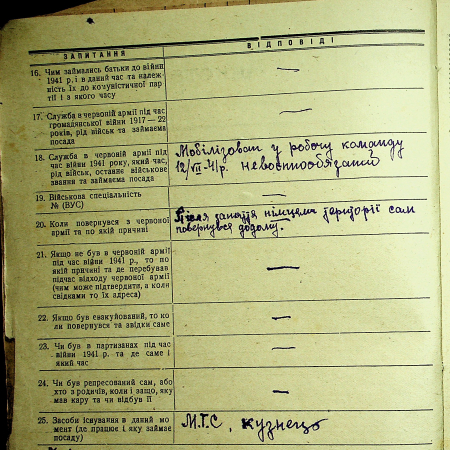 ЗАПИТАННЯ ВІДПОВІДІ
16. Чим займались батьки до війни
1941 р. і в даний час та належ-
ність їх до комуністичної пар
тії і з якого часу —
17. Служба в червоній армії під час
громадянської війни 1917—22
років, рід військ та займаєма
посада —
18. Служба в червоній армії під
час війни 1941 року, який час,
рід військ, останнє військове
звання та займаєма посада
Мобілізован у робочу команду
12/VII-41р. невоєннообязаний
19. Військова спеціальність
№ (ВУС) —
20. Коли повернувся з червоної
армії та по якій причині
Після заняття німцями територіі сам
повернувся додому.
21. Якщо не був в червоній армії
під час війни 1941 р., то по
якій причині та де перебував
підчас відходу червоної армії
(чим може підтвердити, а коли
свідками то їх адреса) —
22. Якщо був евакуйований, то ко
ли повернувся та звідки саме —
23. Чи був в партизанах під час
війни 1941 р. та де саме і
який час —
24. Чи був репресований сам, або
хто з родичів, коли і защо, яку
мав кару та чи відбув її —
25. Засоби існування в даний мо
мент (де працює і яку займає
посаду)
М.Т.С, кузнець